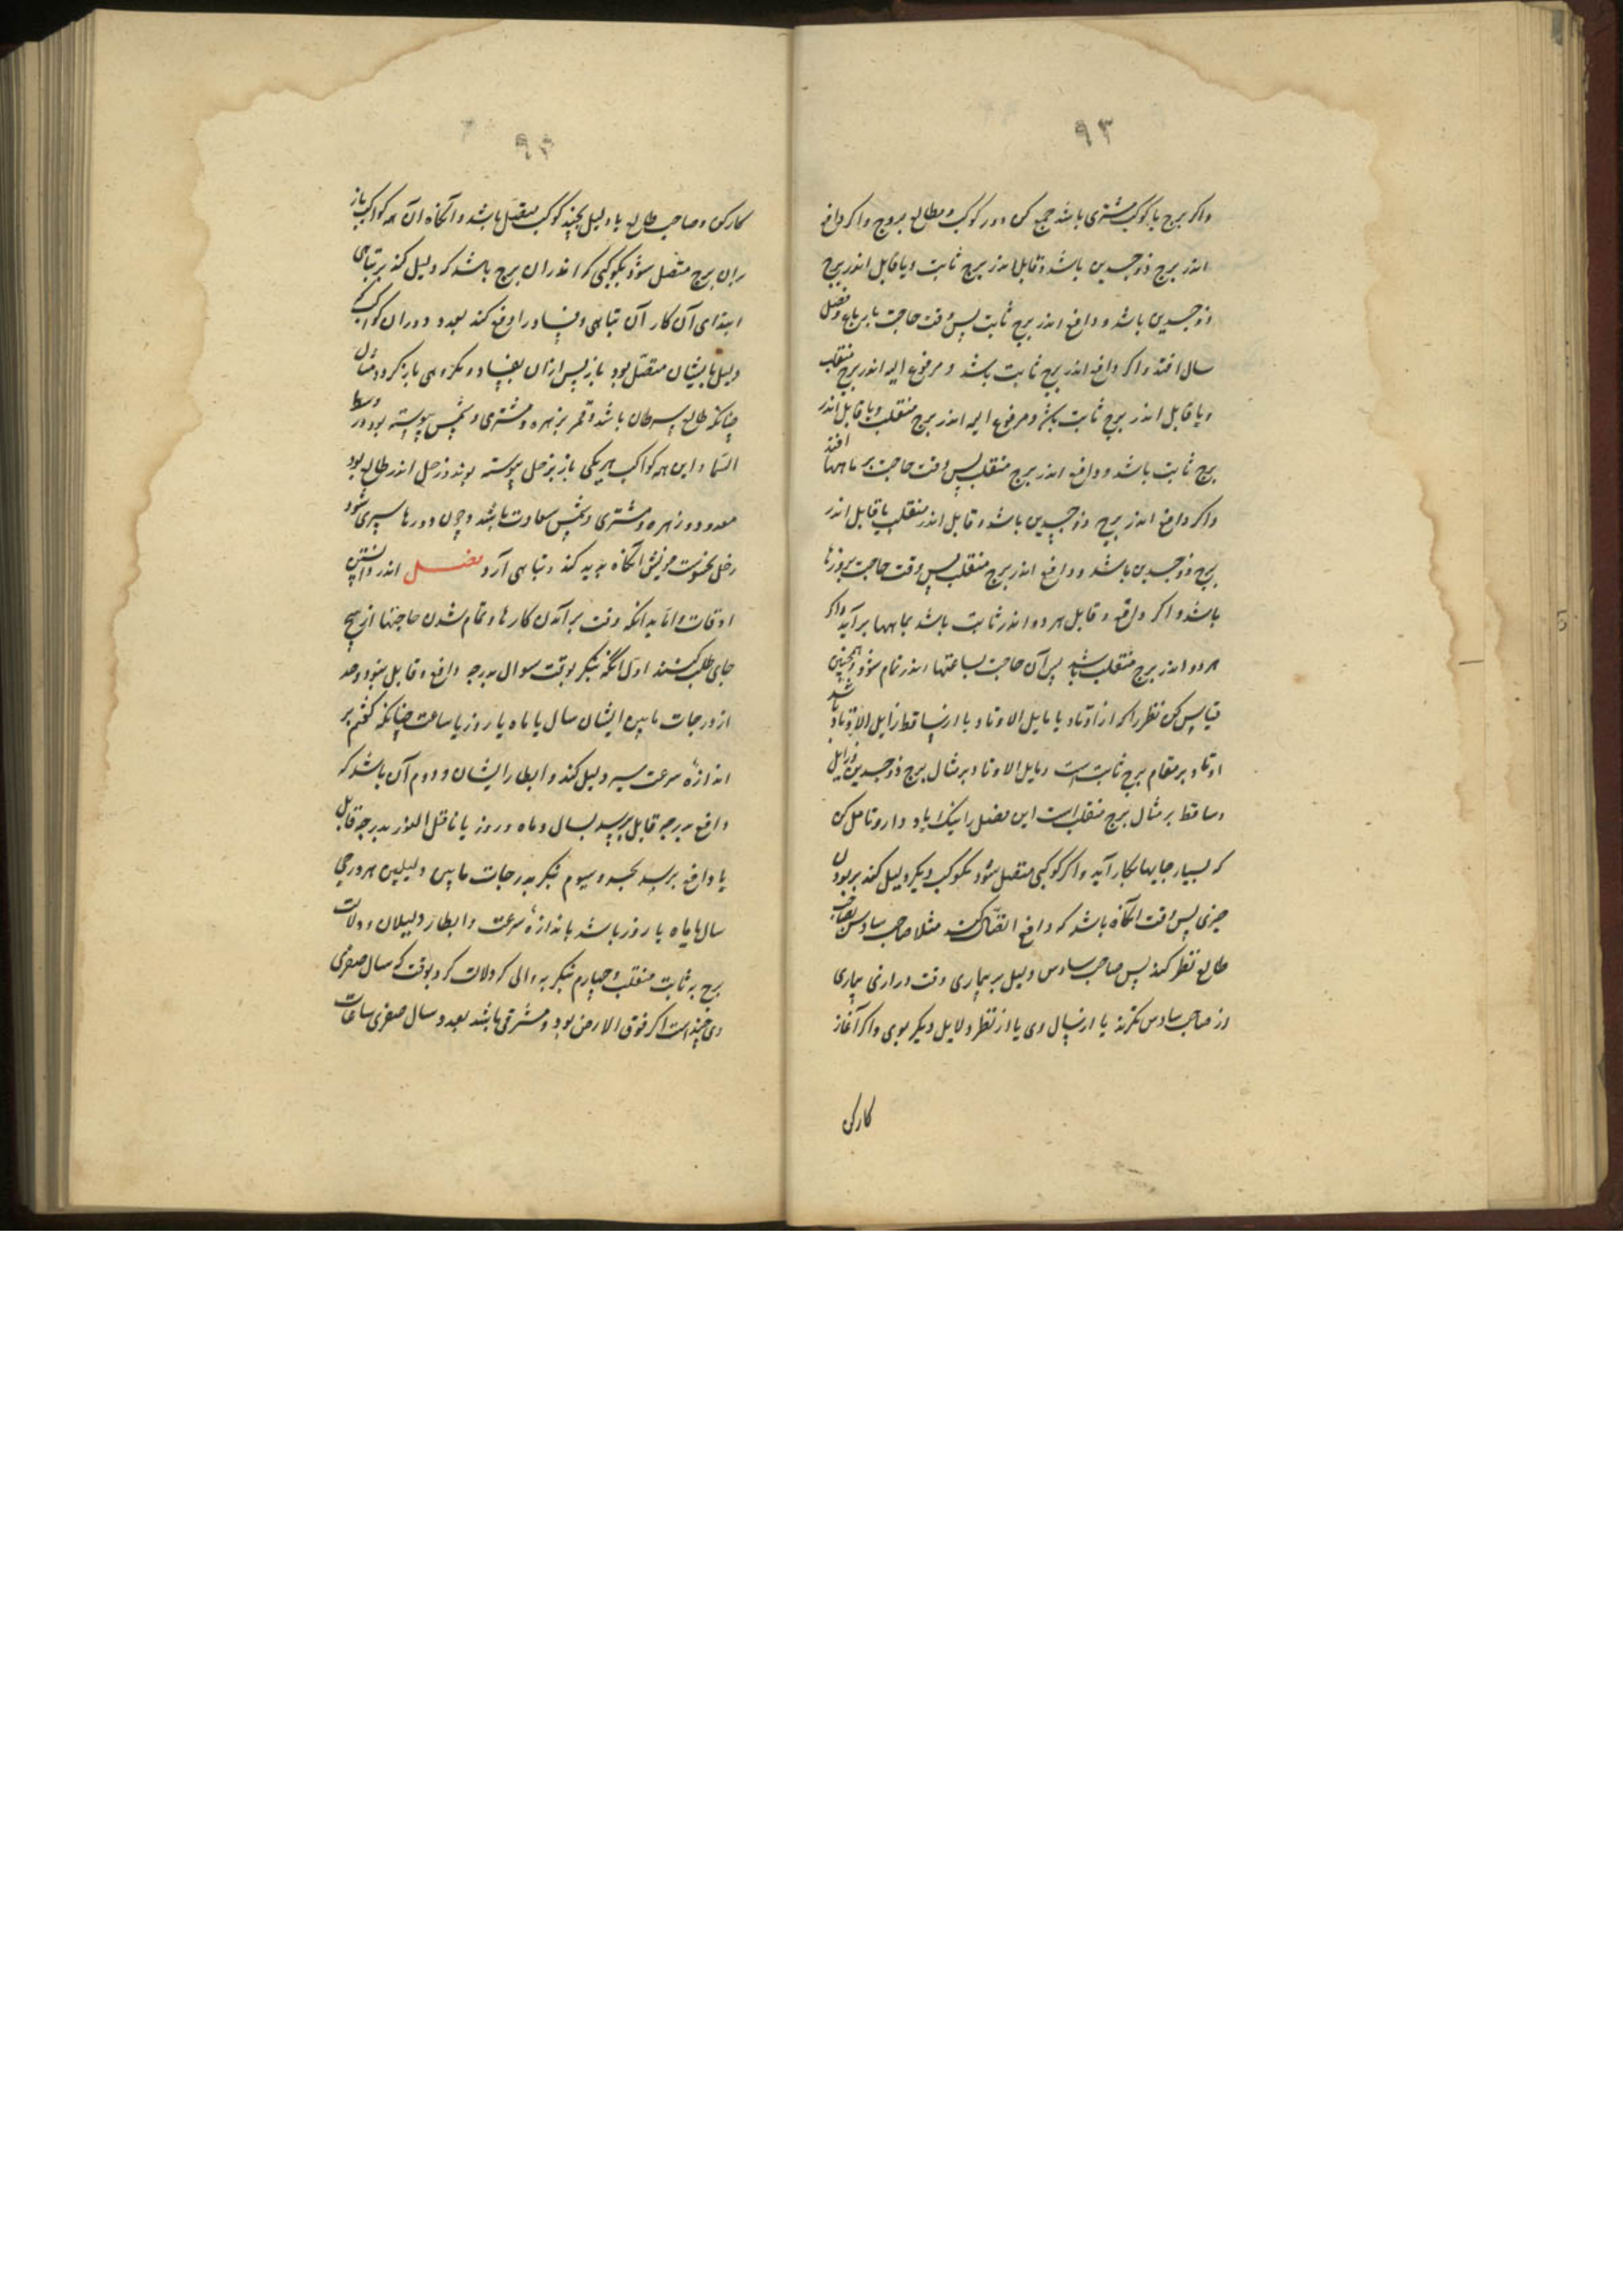 ۹۳
واکر برج یا کوکب مشتری باشد جمع کن دور کوکب و مطالع بروج واکر دافع
اندر برج ذوجسدین باشد و قابل اندر برج ثابت ویا قابل اندر برج
ذوجسدین باشد و دافع اندر برج ثابت پس وقت حاجت
سال افتد واکر دافع اندر برج ثابت باشد و مرفوع الیه اندر برج منقلب
ویا قابل اندر برج ثابت باشد و مرفوع الیه اندر برج منقلب ویا قابل اندر
برج ثابت باشد و دافع اندر برج منقلب پس وقت حاجت بر ماهها افتد
واکر دافع اندر برج ذوجسدین باشد و قابل اندر منقلب یا قابل اندر
برج ذوجسدین باشد و دافع اندر برج منقلب پس وقت حاجت بروزها
باشد و اکر دافع و قابل هر دو اندر ثابت باشد بماهها برآید واکر
هر دو اندر برج منقلب باشد پس آن حاجت بساعتها اندر تمام شود و همچنین
قیاس کن نظر را که از اوتاد یا مایل الاوتاد یا از ساقط زایل الاوتاد باشد
اوتاد بر مقام برج ثابت است و مایل الاوتاد بر مثال برج ذوجسدین و زایل
وساقط بر مثال برج منقلب است این فصل را نیک یاد دار و تامل کن
که بسیار جایها بکار آید واکر کوکبی متصل شود بکوکب دیکر و دلیل کند بر بودن
چیزی پس وقت انکاه باشد که دافع اتصال کند مثلا صاحب سادس بصاحب
طالع نظر کند پس صاحب سادس دلیل بر بیماری وقت درازی بیماری
از صاحب سادس نکرند یا از اتصال وی یا از نظر دلایل دیکر بوی واکر آغاز
کارکی
۹۴
کارکی و صاحب طالع یا دلیل بچند کوکب متصل باشد و آنکاه آن همه کواکب باز
بران برج متصل شود بکوکبی که اندران برج باشد که دلیل کند بر تباهی
ابتدای آن کار آن تباهی و فساد را دفع کند بعدد دوران کواکب که
دلیل بایشان متصل بود باز پس ازان بفساد و مکروهی باز کردد مثال
چنانکه طالع سرطان باشد و قمر بزهره و مشتری و شمس پیوسته بود و در وسط
السما و این همه کواکب هر یکی باز بزحل پیوسته بوند و زحل اندر طالع بود
بعدد دور زهره و مشتری و شمس سعادت باشد و چون دورها سپری شود
زحل نحوست خویش آنکاه پدید کند و تباهی آرد فصل اندر دانستن
اوقات و اما بدانکه وقت بر آمدن کارها و تمام شدن حاجتها از پنج
جای طلب کنند اول آنکه بنکر بوقت سوال بدرجه دافع و قابل
از درجات مابین ایشان سال یا ماه یا روز یا ساعت چنانکه کفتم بر
اندازه سرعت سیر دلیل کند و ابطا را ایشان و دوم آن باشد که
دافع بدرجه قابل برسد بسال و ماه و روز یا ناقل النور بدرجه قابل
یا دافع برسد بجسد و سیوم بنکر بدرجات مابین دلیلین هر درجی
سال یا ماه یا روز باشد باندازه سرعت و ابطا دلیلان و دلالت
برج به ثابت منقلب و چهارم بنکر به والی که دلالت کرد بوقت که سال صغری
وی چند است اکر فوق الارض بود و مشرقی باشد بعدد سال صغری ساعات